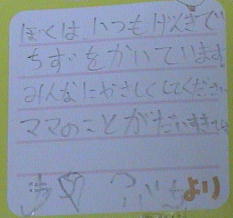 ぼくは いつもげんきで
ちずをかいています
みんなにやさしくしてください
ママのことがだいすきです
より